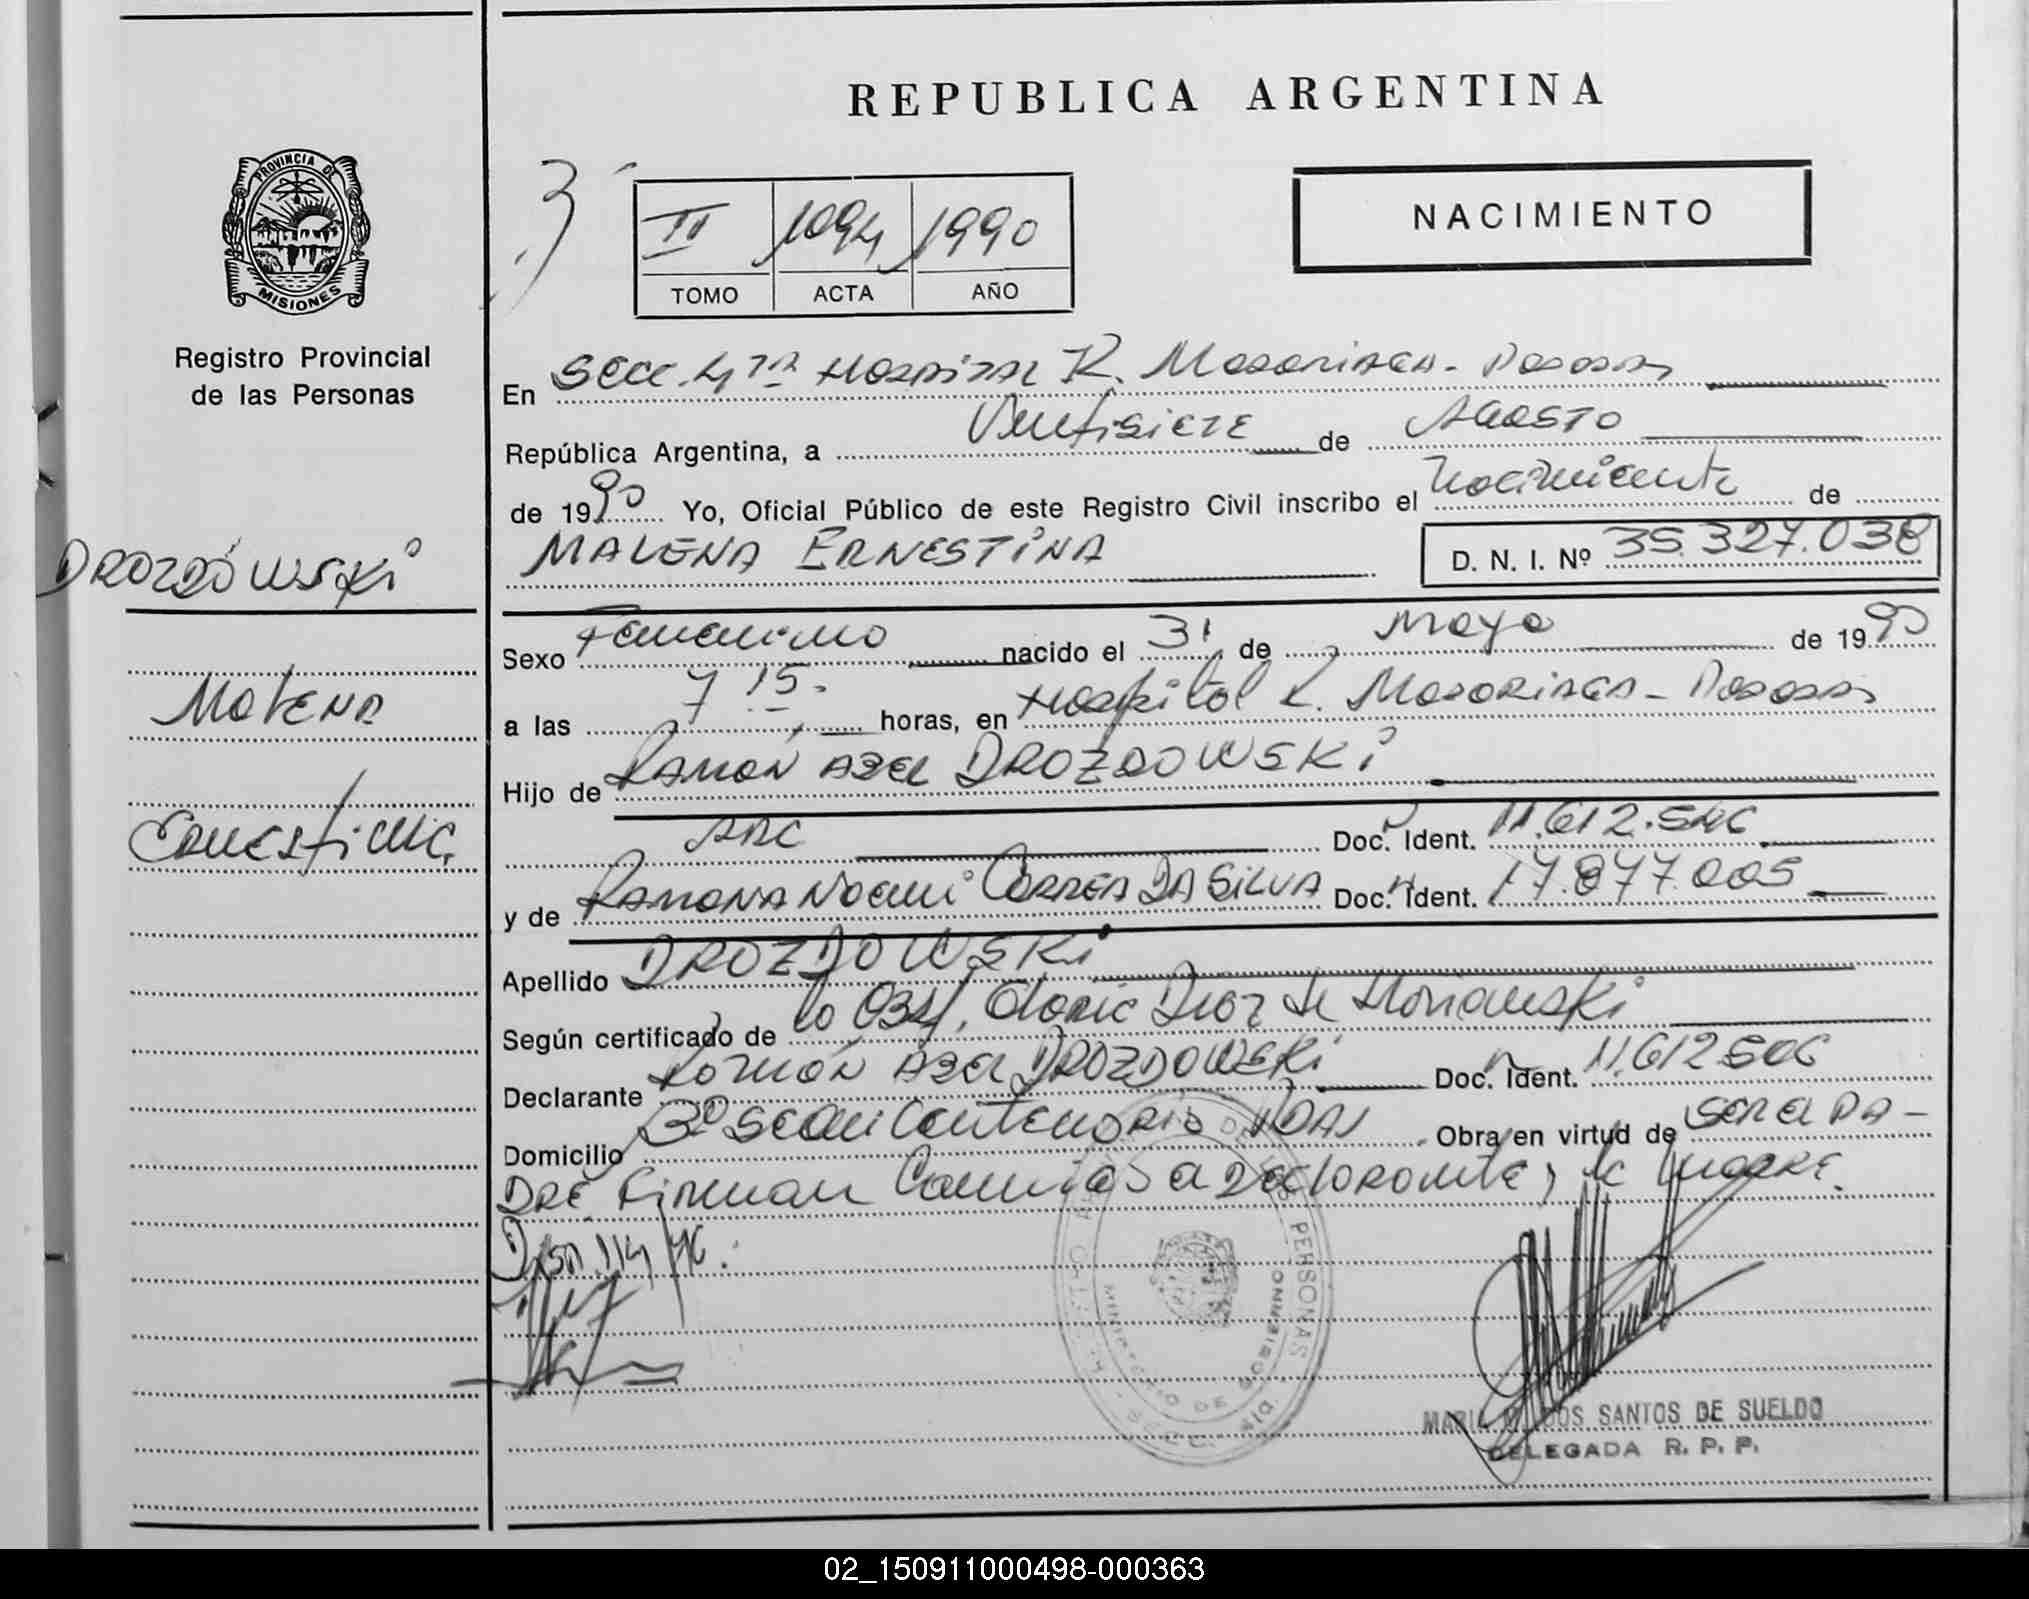 REPUBLICA ARGENTINA
PROVINCIA DE
MISIONES
Registro Provincial
de las Personas
3
II 1094 1990
TOMO ACTA AÑO
NACIMIENTO
En Secc. 4ta Hospital R. Madariaga - Posadas
República Argentina, a Veintisiete de Agosto
de 1990 Yo, Oficial Público de este Registro Civil inscribo el Nacimiento de
MALENA ERNESTINA D. N. I. Nº 35.327.038
DROZDOWSKI
Malena
Ernestina
Sexo Femenino nacido el 31 de Mayo de 1990
a las 7 15 horas, en Hospital R. Madariaga - Posadas
Hijo de Ramón Azel DROZDOWSKI
ARG Doc. Ident. 11.612.506
y de Ramona Noemi Correa DA SILVA Doc. Ident. 17.877.005
Apellido DROZDOWSKI
Según certificado de la Obst.
Declarante Ramón Azel DROZDOWSKI Doc. Ident. 11.612506
Domicilio 3º Sesquicentenario Pdas Obra en virtud de ser el PA-
DRE. Firman Conmigo el declarante y la MADRE.
PERSONAS
MINISTERIO DE GOBIERNO
MARIA M. DOS SANTOS DE SUELDO
DELEGADA R. P. P.
02_150911000498-000363